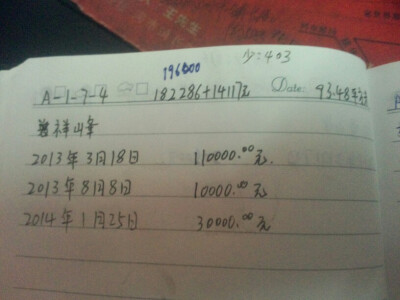 少:403
196000
A-1-7-4 182286+14117元 Date: 93.48平方
祥峰
2013年3月18日 110000.00元.
2013年8月8日 10000.00元
2014年1月25日 30000.00元